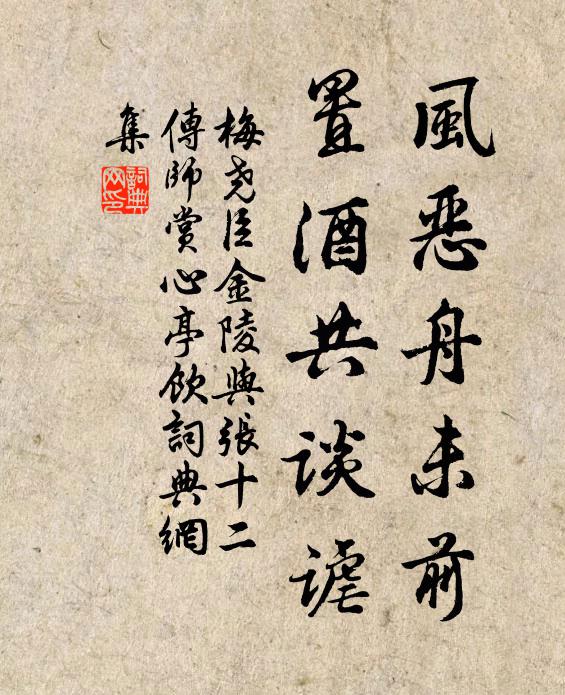 風惡舟未前
置酒共談謔
梅堯臣金陵與張十二
傳師賞心亭飲詞典網
集
詞典網印